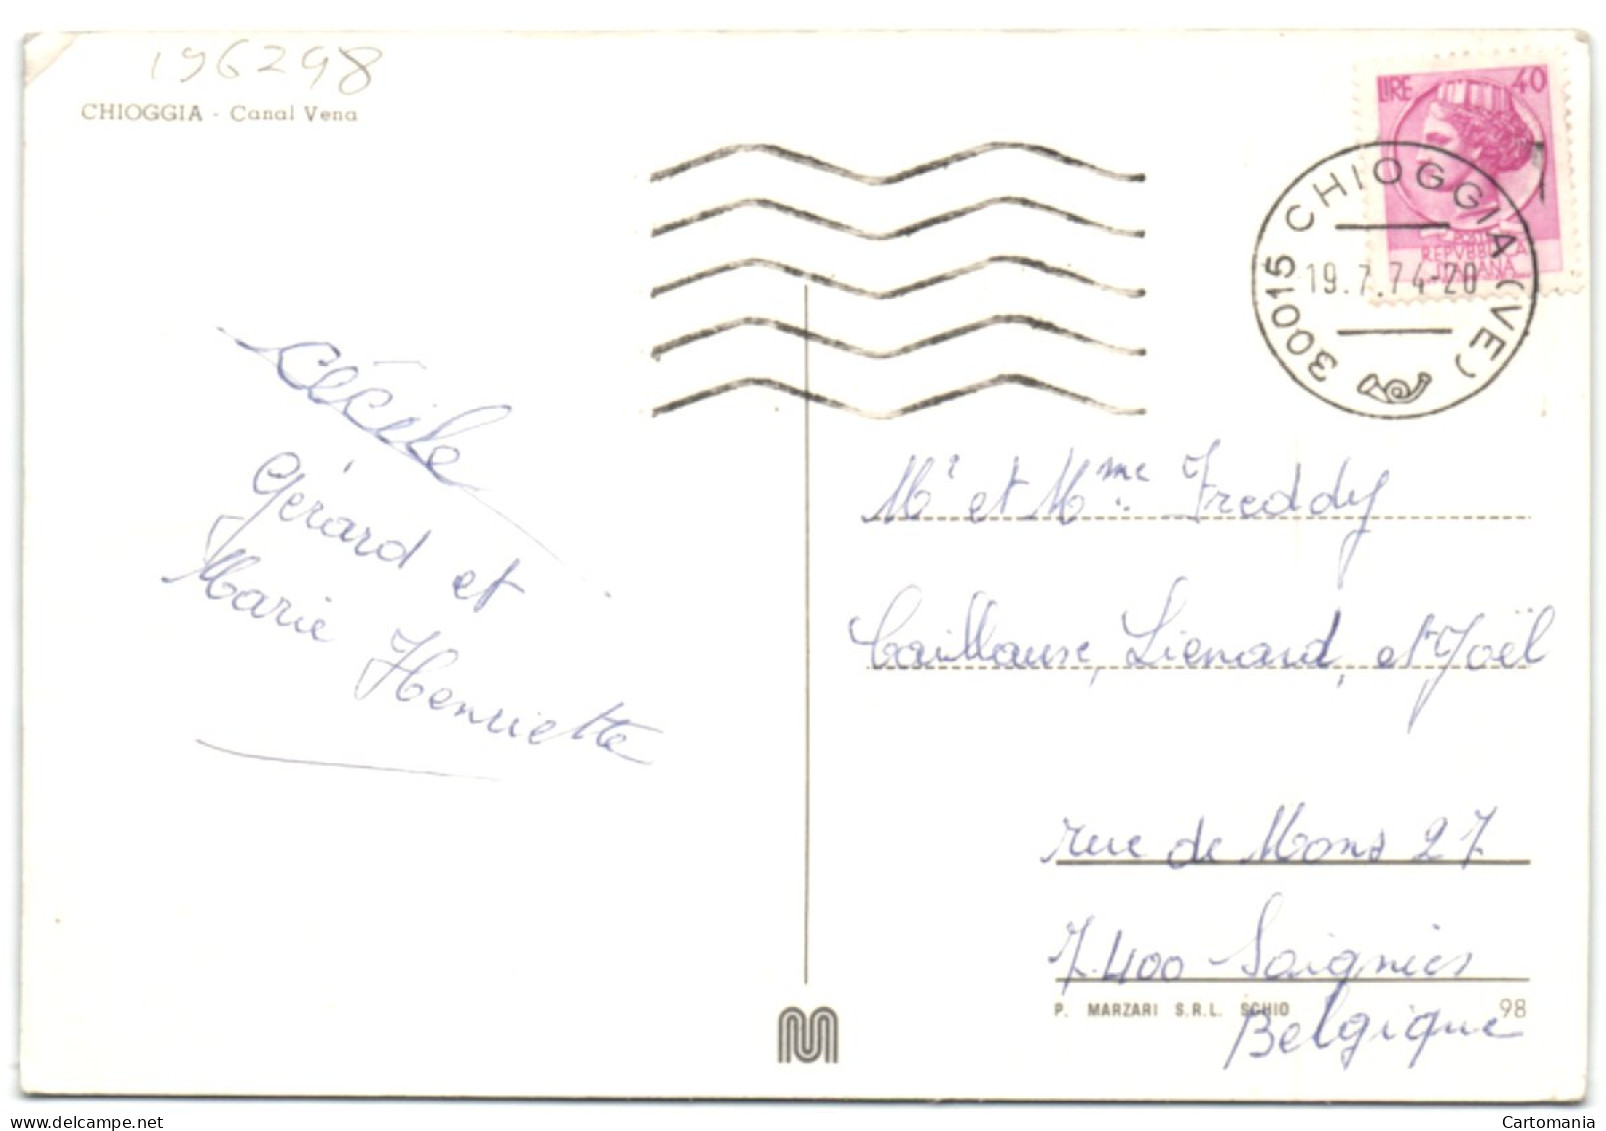 196298
CHIOGGIA - Canal Vena
LIRE 40
POSTE
REPVBBLICA
ITALIANA
30015 CHIOGGIA (VE)
19.7.74-20
Cécile
Gérard et
Marie Henriette
Mr et Mme Freddy
Caillauxe, Lienard, et Joël
rue de Mons 27
7.400 Soignies
Belgique
P. MARZARI S.R.L. SCHIO
98
Cartomania